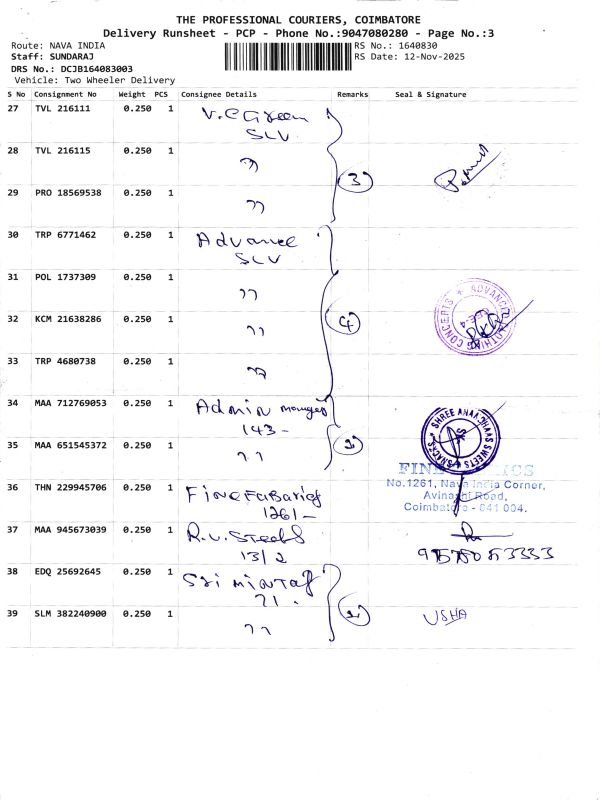 THE PROFESSIONAL COURIERS, COIMBATORE
Delivery Runsheet - PCP - Phone No.:9047080280 - Page No.:3
Route: NAVA INDIA
RS No.: 1640830
Staff: SUNDARAJ
RS Date: 12-Nov-2025
DRS No.: DCJB164083003
Vehicle: Two Wheeler Delivery
S No Consignment No Weight PCS Consignee Details Remarks Seal & Signature
27 TVL 216111 0.250 1 V.C Green
SLV
28 TVL 216115 0.250 1 ״
3
29 PRO 18569538 0.250 1 ״
30 TRP 6771462 0.250 1 Advance
SLV
31 POL 1737309 0.250 1 ״
32 KCM 21638286 0.250 1 ״ 4
33 TRP 4680738 0.250 1 ״
34 MAA 712769053 0.250 1 Admin manager
143 -
SHREE ANAA SWEETS
SNACKS
35 MAA 651545372 0.250 1 ״ 2
No.1261, Nava India Corner,
Avinashi Road,
Coimbatore - 641 004.
36 THN 229945706 0.250 1 Fine Fabarics
1261 -
37 MAA 945673039 0.250 1 R.V. Steels
13/2
38 EDQ 25692645 0.250 1 Sri mintaf
71.
39 SLM 382240900 0.250 1 ״ 2 USHA